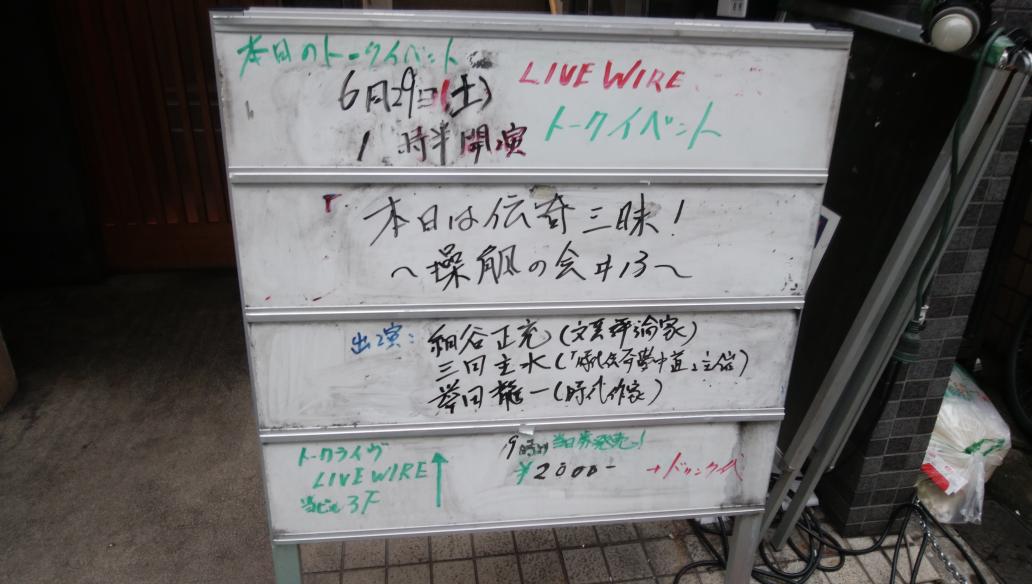 本日のトークイベント
6月29日(土)
LIVE WIRE
1 時半開演
トークイベント
本日は伝奇三昧!
~操觚の会#13~
出演: 細谷正充(文芸評論家)
三田主水(「時代伝奇夢中道」主催)
誉田龍一(時代作家)
トークライヴ
LIVE WIRE ↑
当ビル3F
当日券発売!
¥2000-
+ドリンク代